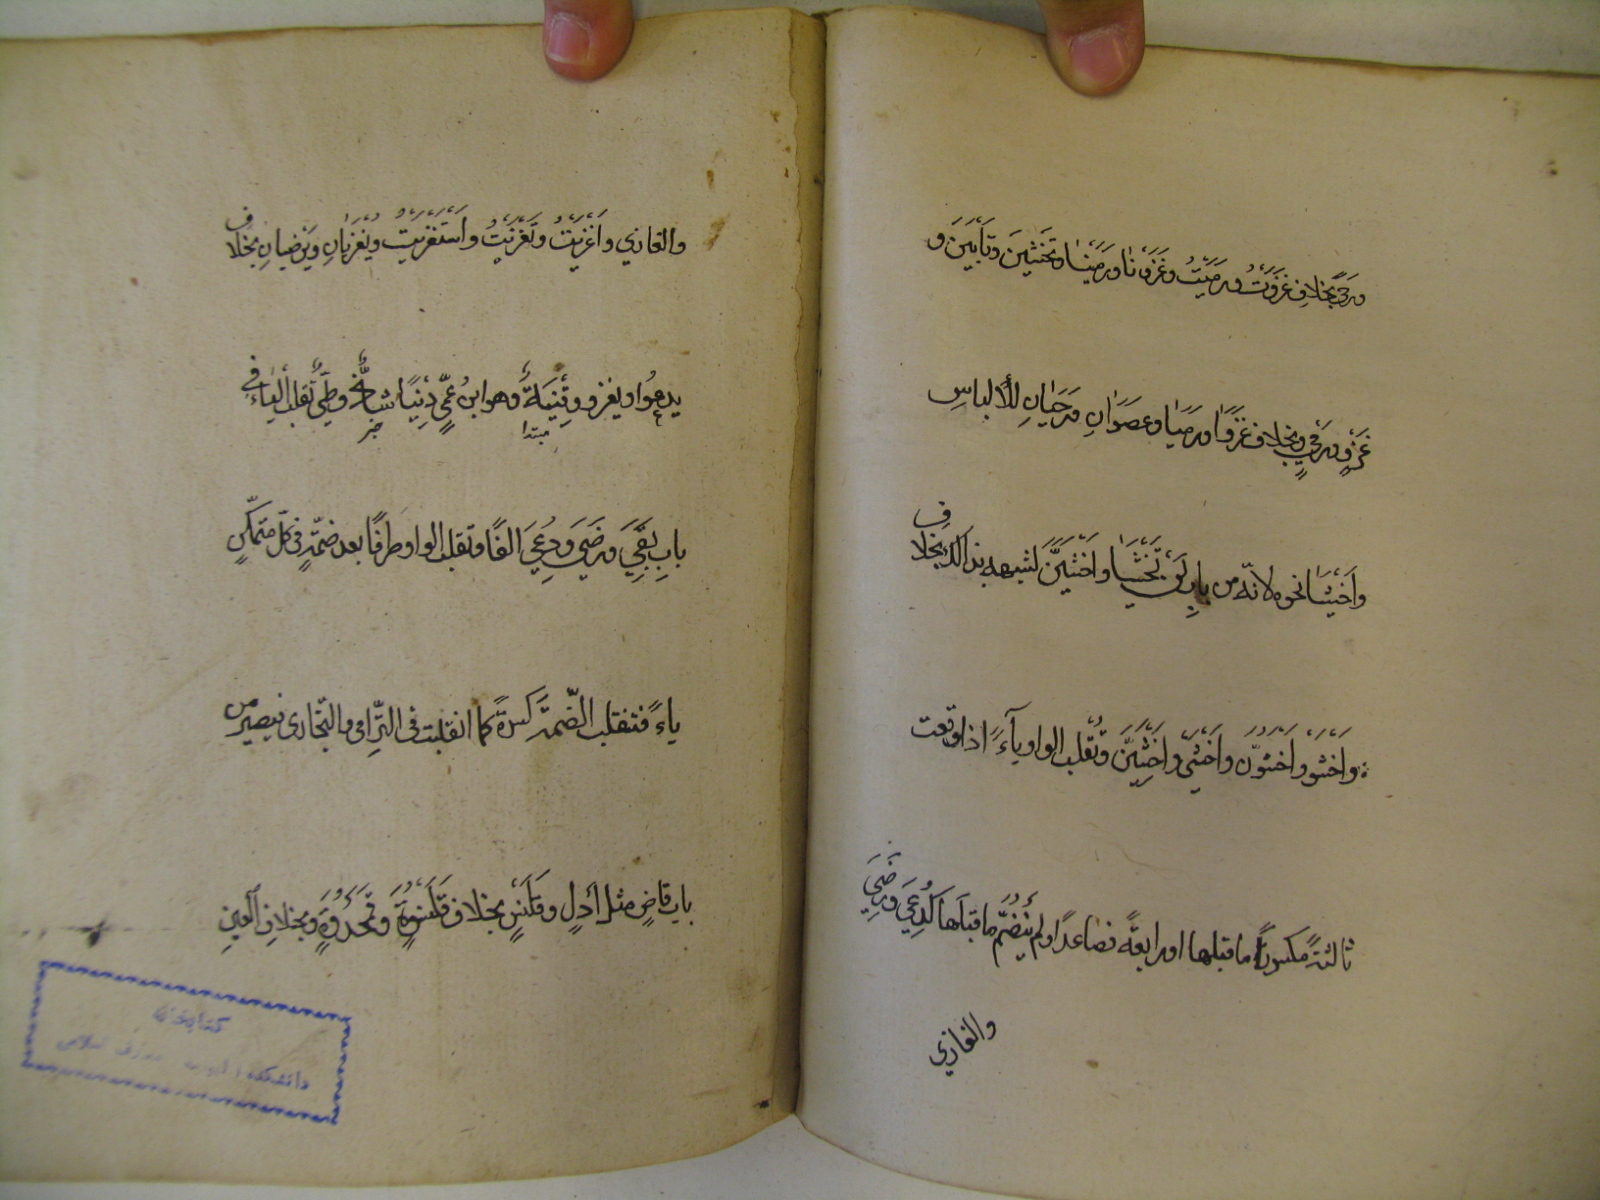 ورحًى بخلاف غَزَوْتُ ورَمَيْتُ وغَزَوْنا ورَمَيْنا وتَخْشَيْنَ وتأبَيْنَ و
غَزْوٍ ورَمْيٍ وبخلاف غَزَوَا ورَمَيَا وعَصَوَانِ ورَحَيَانِ للألباسِ
واخْشَيَا نحوه لانّه من باب لَنْ يَخْشَيَا واخْشَيَنَّ لشبهه بذلك بخلاف
واخْشَوْا واخْشَوُنَّ واخْشَيْ واخْشَيِنَّ وتُقلب الواو ياءً اذا وقعت
ثالثةً مكسورًا ما قبلها او رابعةً فصاعدًا ولم يُنضمّ ما قبلها كدُعِيَ ورَضِيَ
والغازي
والغازي واَغْزَيْتُ وتَغَزَّيْتُ واسْتَغْزَيْتُ ويُغْزَيانِ ويَرْضَيانِ بخلاف
يدعوا ويغزو وقِنْيَةٌ وهو ابنُ عمّي دِنْيًا شاذٌّ وطيّئٌ تقلب الياءَ في
مبتدا
خبر
بابِ بَقِيَ ورَضِيَ ودُعِيَ الفًا وتقلب الواو طرفًا بعد ضمّةٍ في كلّ متمكّنٍ
ياءً فتنقلب الضّمة كسرةً كما انقلبت في التّرامي والتّجاري فيصير من
باب قاضٍ مثل اَدْلٍ وقَلَنْسٍ بخلاف قَلَنْسُوَةٍ وقَمَحْدُوَةٍ وبخلاف العينِ
كتابخانه